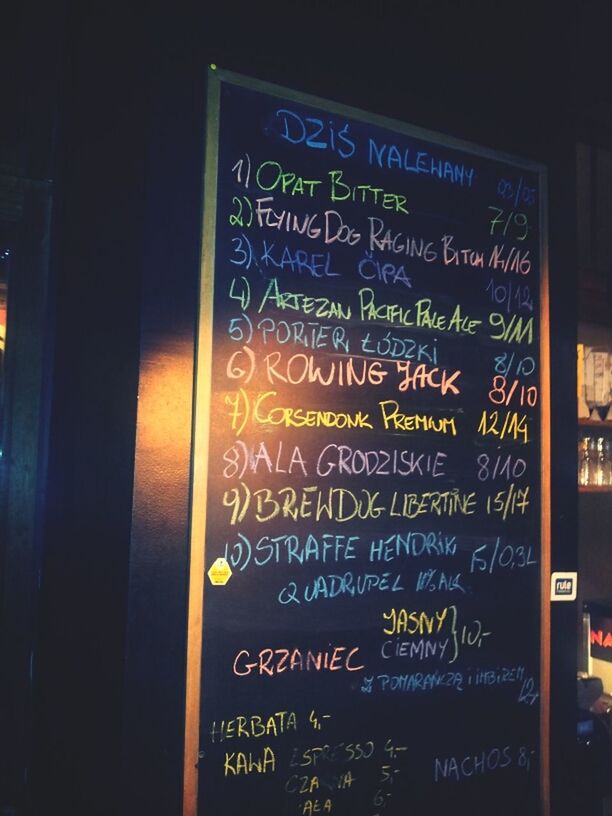 DZIŚ NALEWAMY 03/05
1) OPAT BITTER 7/9
2) FLYING DOG RAGING BITCH 14/16
3) KAREL ČIPA 10/12
4) ARTEZAN PACIFIC PALE ALE 9/11
5) PORTER ŁÓDZKI 8/10
6) ROWING JACK 8/10
7) CORSENDONK PREMIUM 12/14
8) ALA GRODZISKIE 8/10
9) BREWDOG LIBERTINE 15/17
10) STRAFFE HENDRIK 15/0,3L
QUADRUPEL 10% ALK.
GRZANIEC JASNY CIEMNY } 10,-
Z POMARAŃCZĄ I IMBIREM 12,-
HERBATA 4,-
KAWA ESPRESSO 4,-
CZARNA 5,-
6,-
NACHOS 8,-
rule